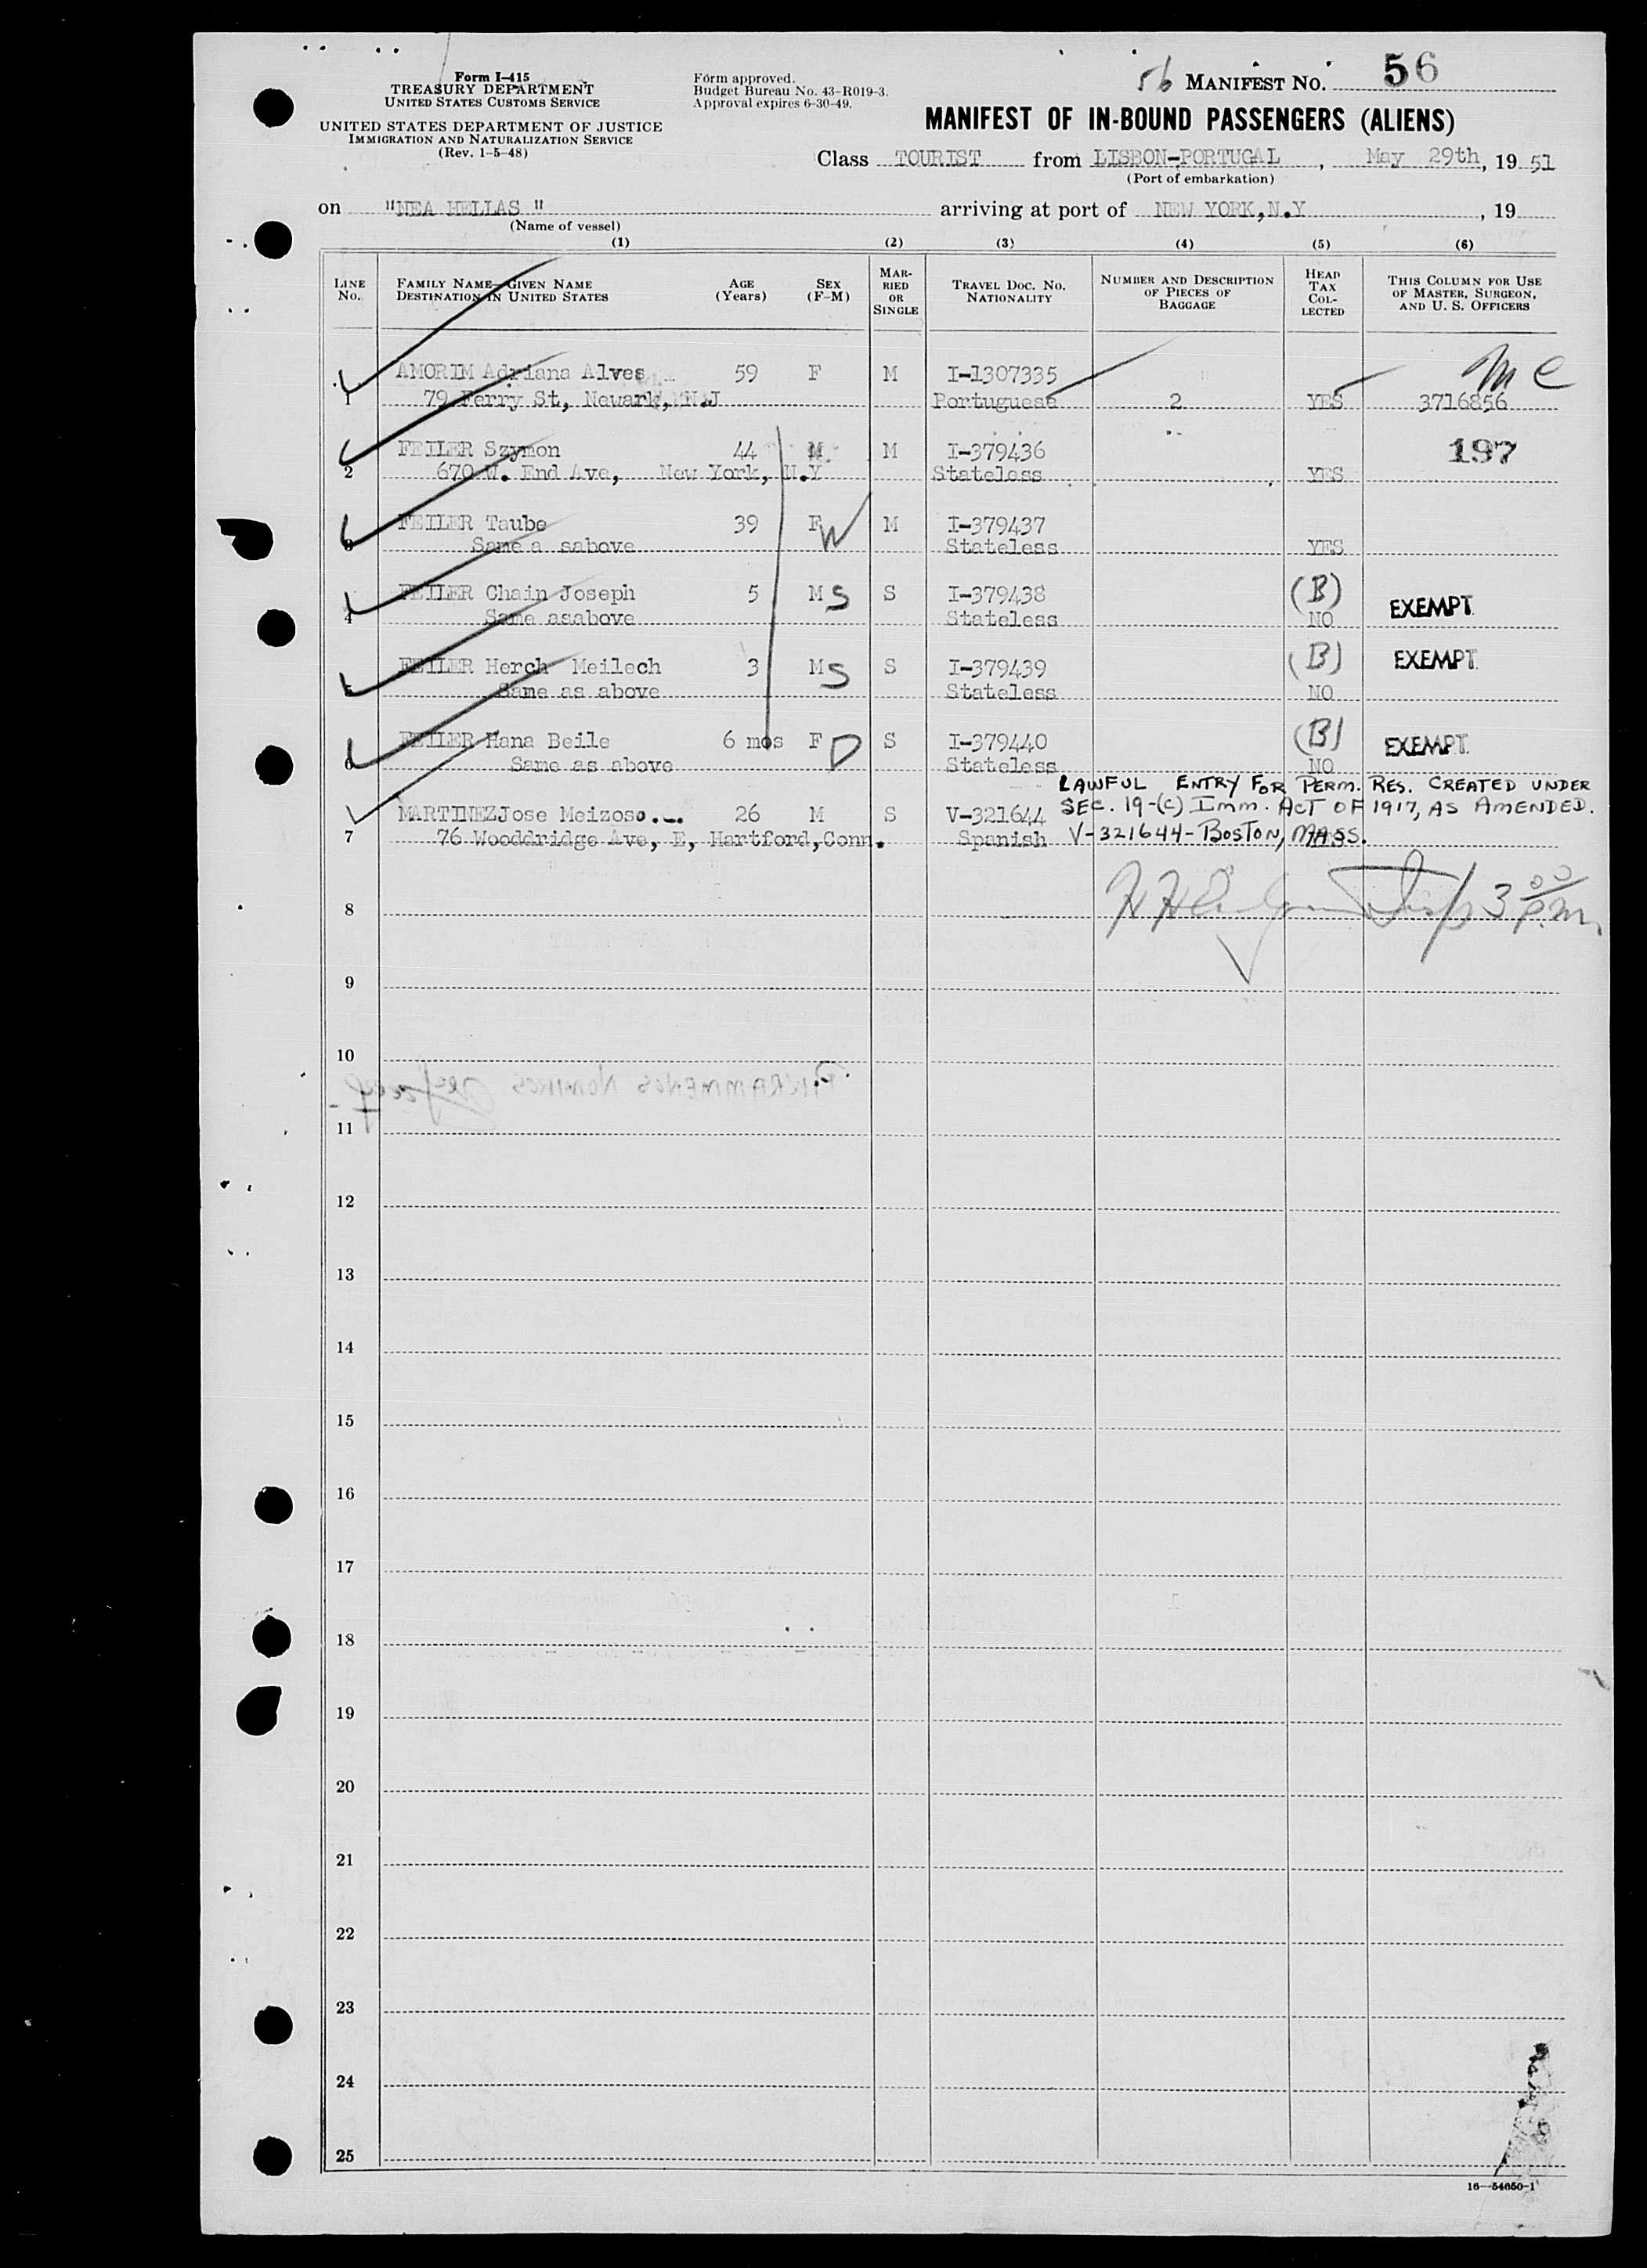 Form I-415
TREASURY DEPARTMENT
UNITED STATES CUSTOMS SERVICE
UNITED STATES DEPARTMENT OF JUSTICE
IMMIGRATION AND NATURALIZATION SERVICE
(Rev. 1-5-48)
Form approved.
Budget Bureau No. 43-R019-3.
Approval expires 6-30-49.
56 MANIFEST NO. 56
MANIFEST OF IN-BOUND PASSENGERS (ALIENS)
Class TOURIST from LISBON-PORTUGAL, May 29th, 19 51
(Port of embarkation)
on "NEA HELLAS" arriving at port of NEW YORK, N.Y, 19
(Name of vessel)
(1) (2) (3) (4) (5) (6)
LINE NO. FAMILY NAME—GIVEN NAME DESTINATION IN UNITED STATES AGE (Years) SEX (F-M) MARRIED OR SINGLE TRAVEL DOC. NO. NATIONALITY NUMBER AND DESCRIPTION OF PIECES OF BAGGAGE HEAD TAX COLLECTED THIS COLUMN FOR USE OF MASTER, SURGEON, AND U. S. OFFICERS
AMORIM Adriana Alves 59 F M I-1307335
1 79 Ferry St, Newark, N.J Portuguese 2 YES 3716856
FEILER Szymon 44 M M I-379436 197
2 670 W. End Ave, New York, N.Y Stateless YES
FEILER Taube 39 F W M I-379437
3 Same a sabove Stateless YES
FEILER Chain Joseph 5 M S S I-379438 (B) EXEMPT
4 Same asabove Stateless NO
FEILER Herch Meilech 3 M S S I-379439 (B) EXEMPT
5 Same as above Stateless NO
FEILER Hana Beile 6 mos F D S I-379440 (B) EXEMPT
6 Same as above Stateless NO
LAWFUL ENTRY FOR PERM. RES. CREATED UNDER
MARTINEZ Jose Meizoso 26 M S V-321644 SEC. 19-(c) IMM. ACT OF 1917, AS AMENDED.
7 76 Wooddridge Ave, E, Hartford, Conn. Spanish V-321644-BOSTON, MASS.
8 3 00 P.M.
9
10
PIKRAMMENOS NOMIKOS
11
12
13
14
15
16
17
18
19
20
21
22
23
24
25
16—54650-1